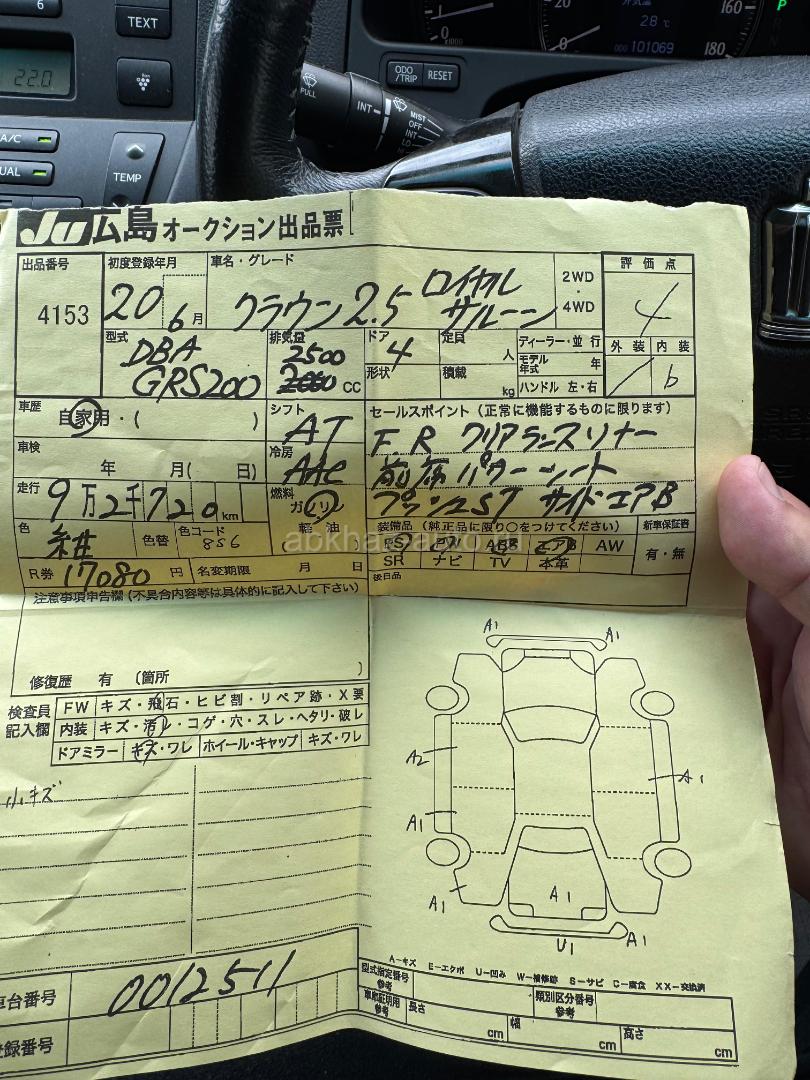 6
TEXT
22.0
A/C
UAL
TEMP
PULL
INT
MIST
OFF
INT
LO
ODO
/TRIP
RESET
0
x1000
20
0
28 ℃
ODO 101069
160
180
P
JU広島オークション出品票
出品番号
4153
初度登録年月
20 6月
車名・グレード
クラウン2.5 ロイヤル
サルーン
2WD
・
4WD
評価点
4
外装 内装
b
型式
DBA
GRS200
排気量
2500
CC
ドア
4
形状
定員
人
積載
kg
ディーラー・並行
モデル
年式
年
ハンドル 左・右
車歴
自家用・( )
シフト
AT
セールスポイント（正常に機能するものに限ります）
F.R クリアランスソナー
パワーシート
プッシュST サイドエアB
車検
年 月( 日)
冷房
AAC
走行
9万2千720km
燃料
ガソリン
軽油
色
色替
色コード
8S6
装備品（純正品に限り○をつけてください）
PS PW ABS エアB AW
SR ナビ TV 本革
新車保証書
有・無
R券
17080 円
名変期限
月 日
後日品
注意事項申告欄（不具合内容等は具体的に記入して下さい）
修復歴 有 〔箇所 〕
検査員
記入欄
FW キズ・飛石・ヒビ割・リペア跡・X要
内装 キズ・汚レ・コゲ・穴・スレ・ヘタリ・破レ
ドアミラー キズ・ワレ ホイール・キャップ キズ・ワレ
小キズ
A1
A1
A2
A1
A1
A1
A1
U1
A1
A-キズ E-エクボ U-凹み W-補修跡 S-サビ C-腐食 XX-交換済
車台番号
0012511
登録番号
型式指定番号
参考
類別区分番号
参考
車庫証明用
参考
長さ
cm
幅
cm
高さ
cm